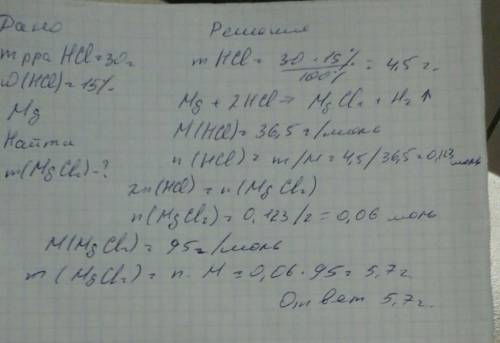 Дано
m рра HCl = 30г
ω(HCl) = 15%
Mg
Найти
m(MgCl₂) - ?
Решения
m HCl = 30 · 15% / 100% = 4,5 г.
Mg + 2HCl → MgCl₂ + H₂ ↑
M(HCl) = 36,5 г/моль
n (HCl) = m/M = 4,5/36,5 = 0,123 моль
2n(HCl) = n(MgCl₂)
n(MgCl₂) = 0,123/2 = 0,06 моль
M(MgCl₂) = 95 г/моль
m (MgCl₂) = n · M = 0,06 · 95 = 5,7 г
Ответ 5,7 г.